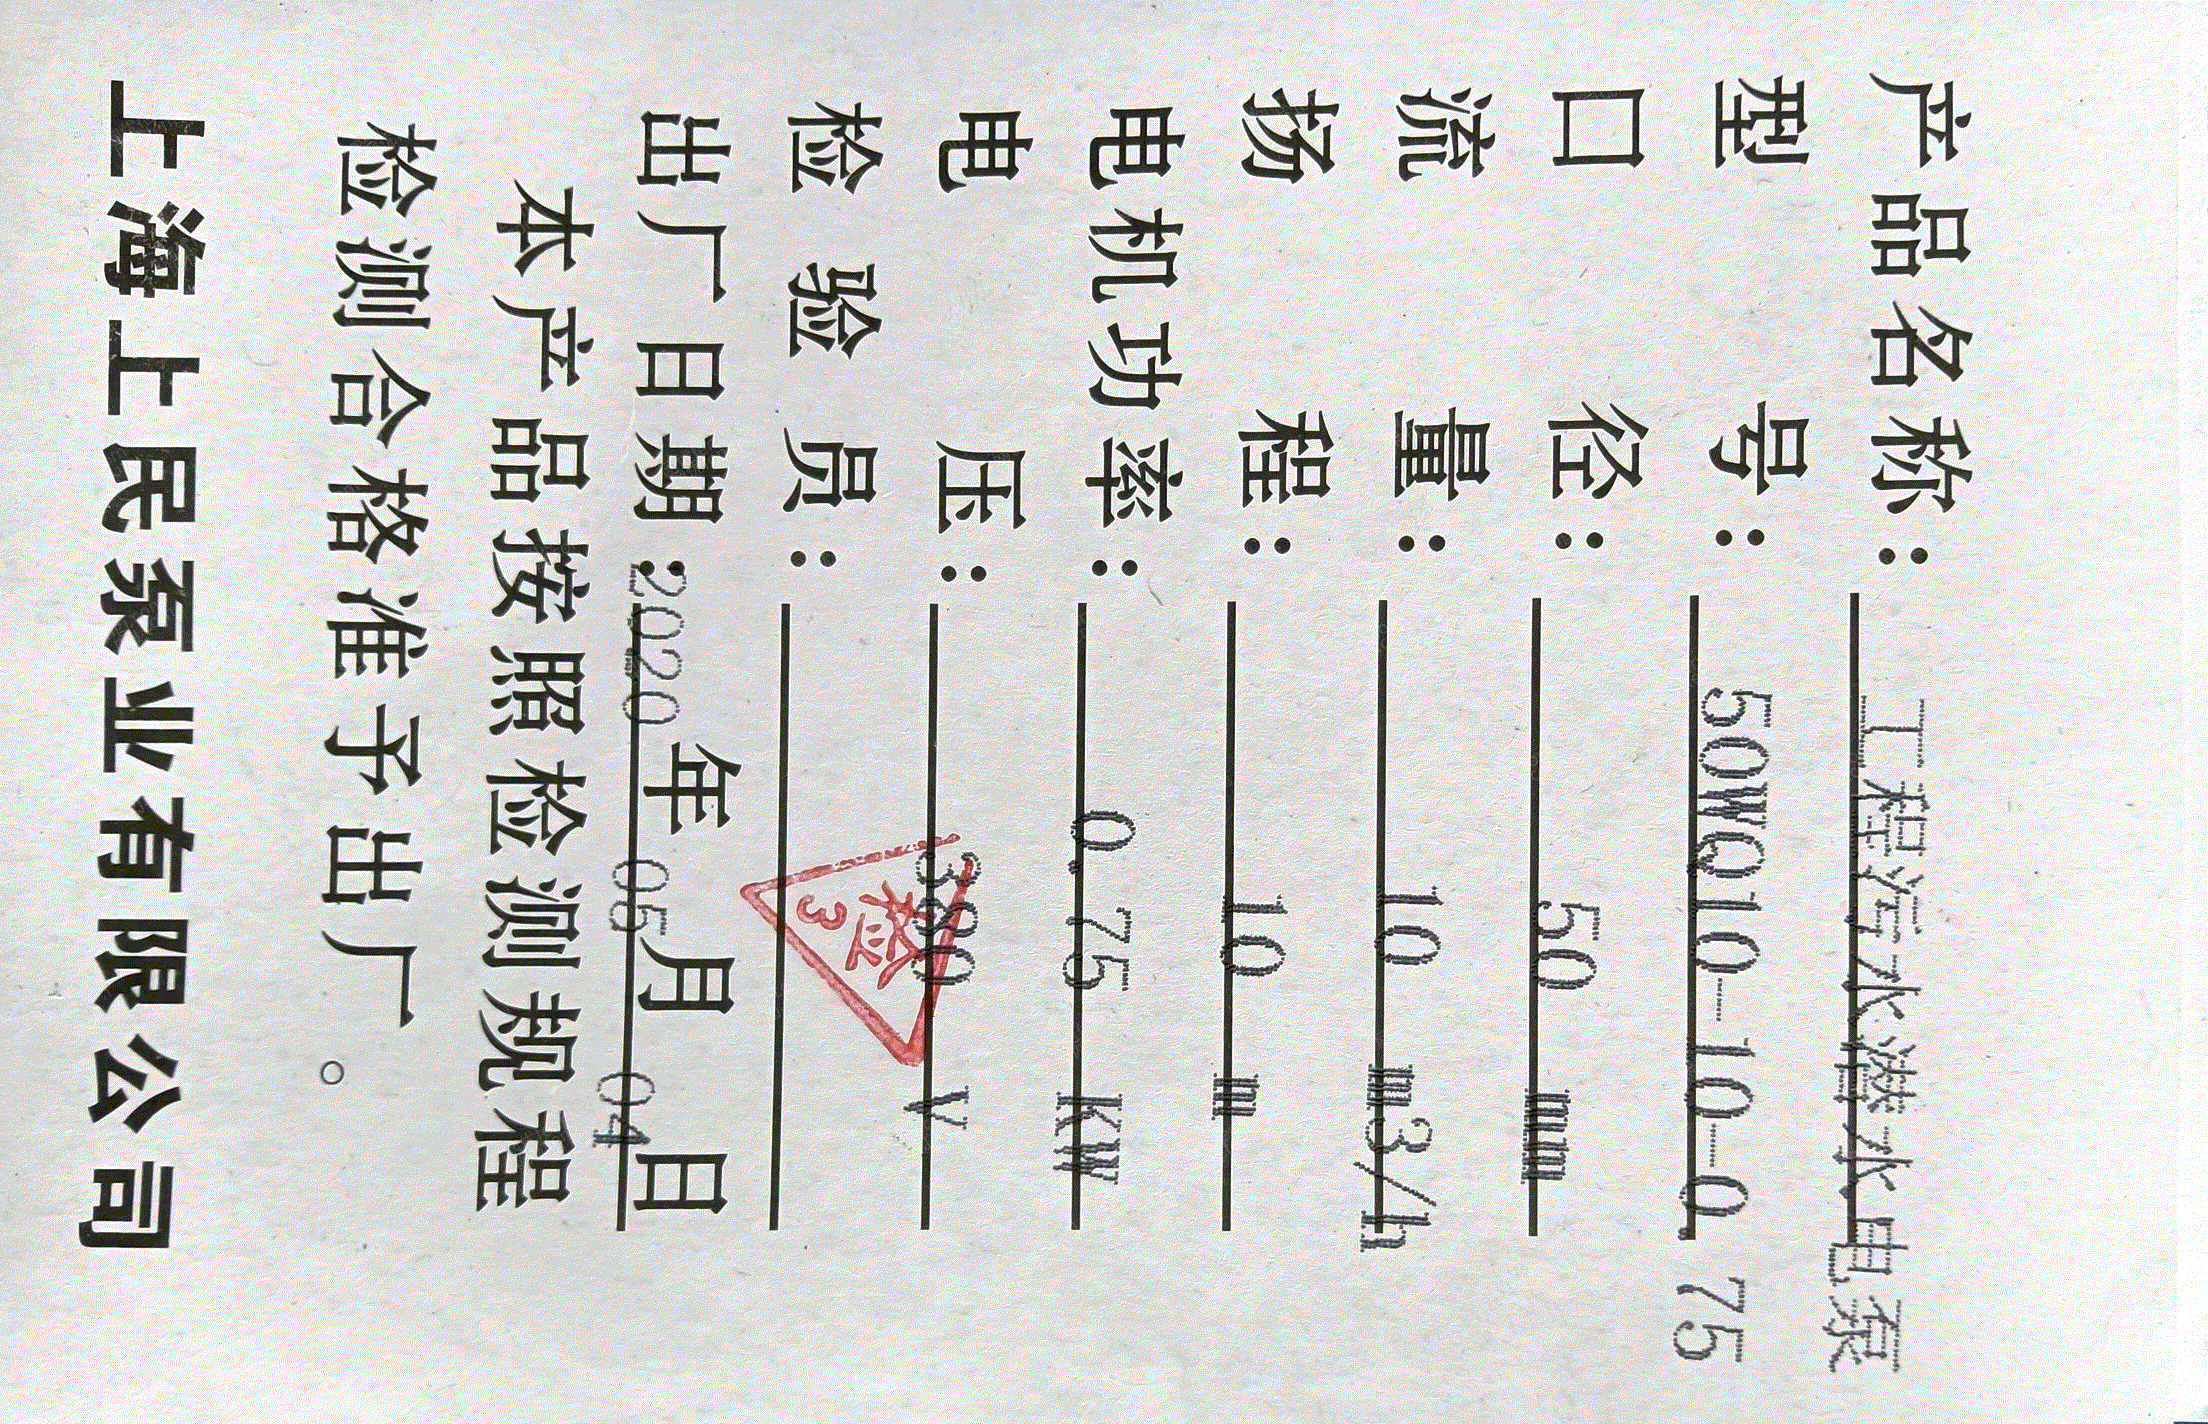 产品名称：工程污水潜水电泵
型号：50WQ10-10-0.75
口径：50 mm
流量：10 m3/h
扬程：10 m
电机功率：0.75 KW
电压：380 V
检验员：
检 3
出厂日期：2020年05月04日
本产品按照检测规程
检测合格准予出厂。
上海上民泵业有限公司